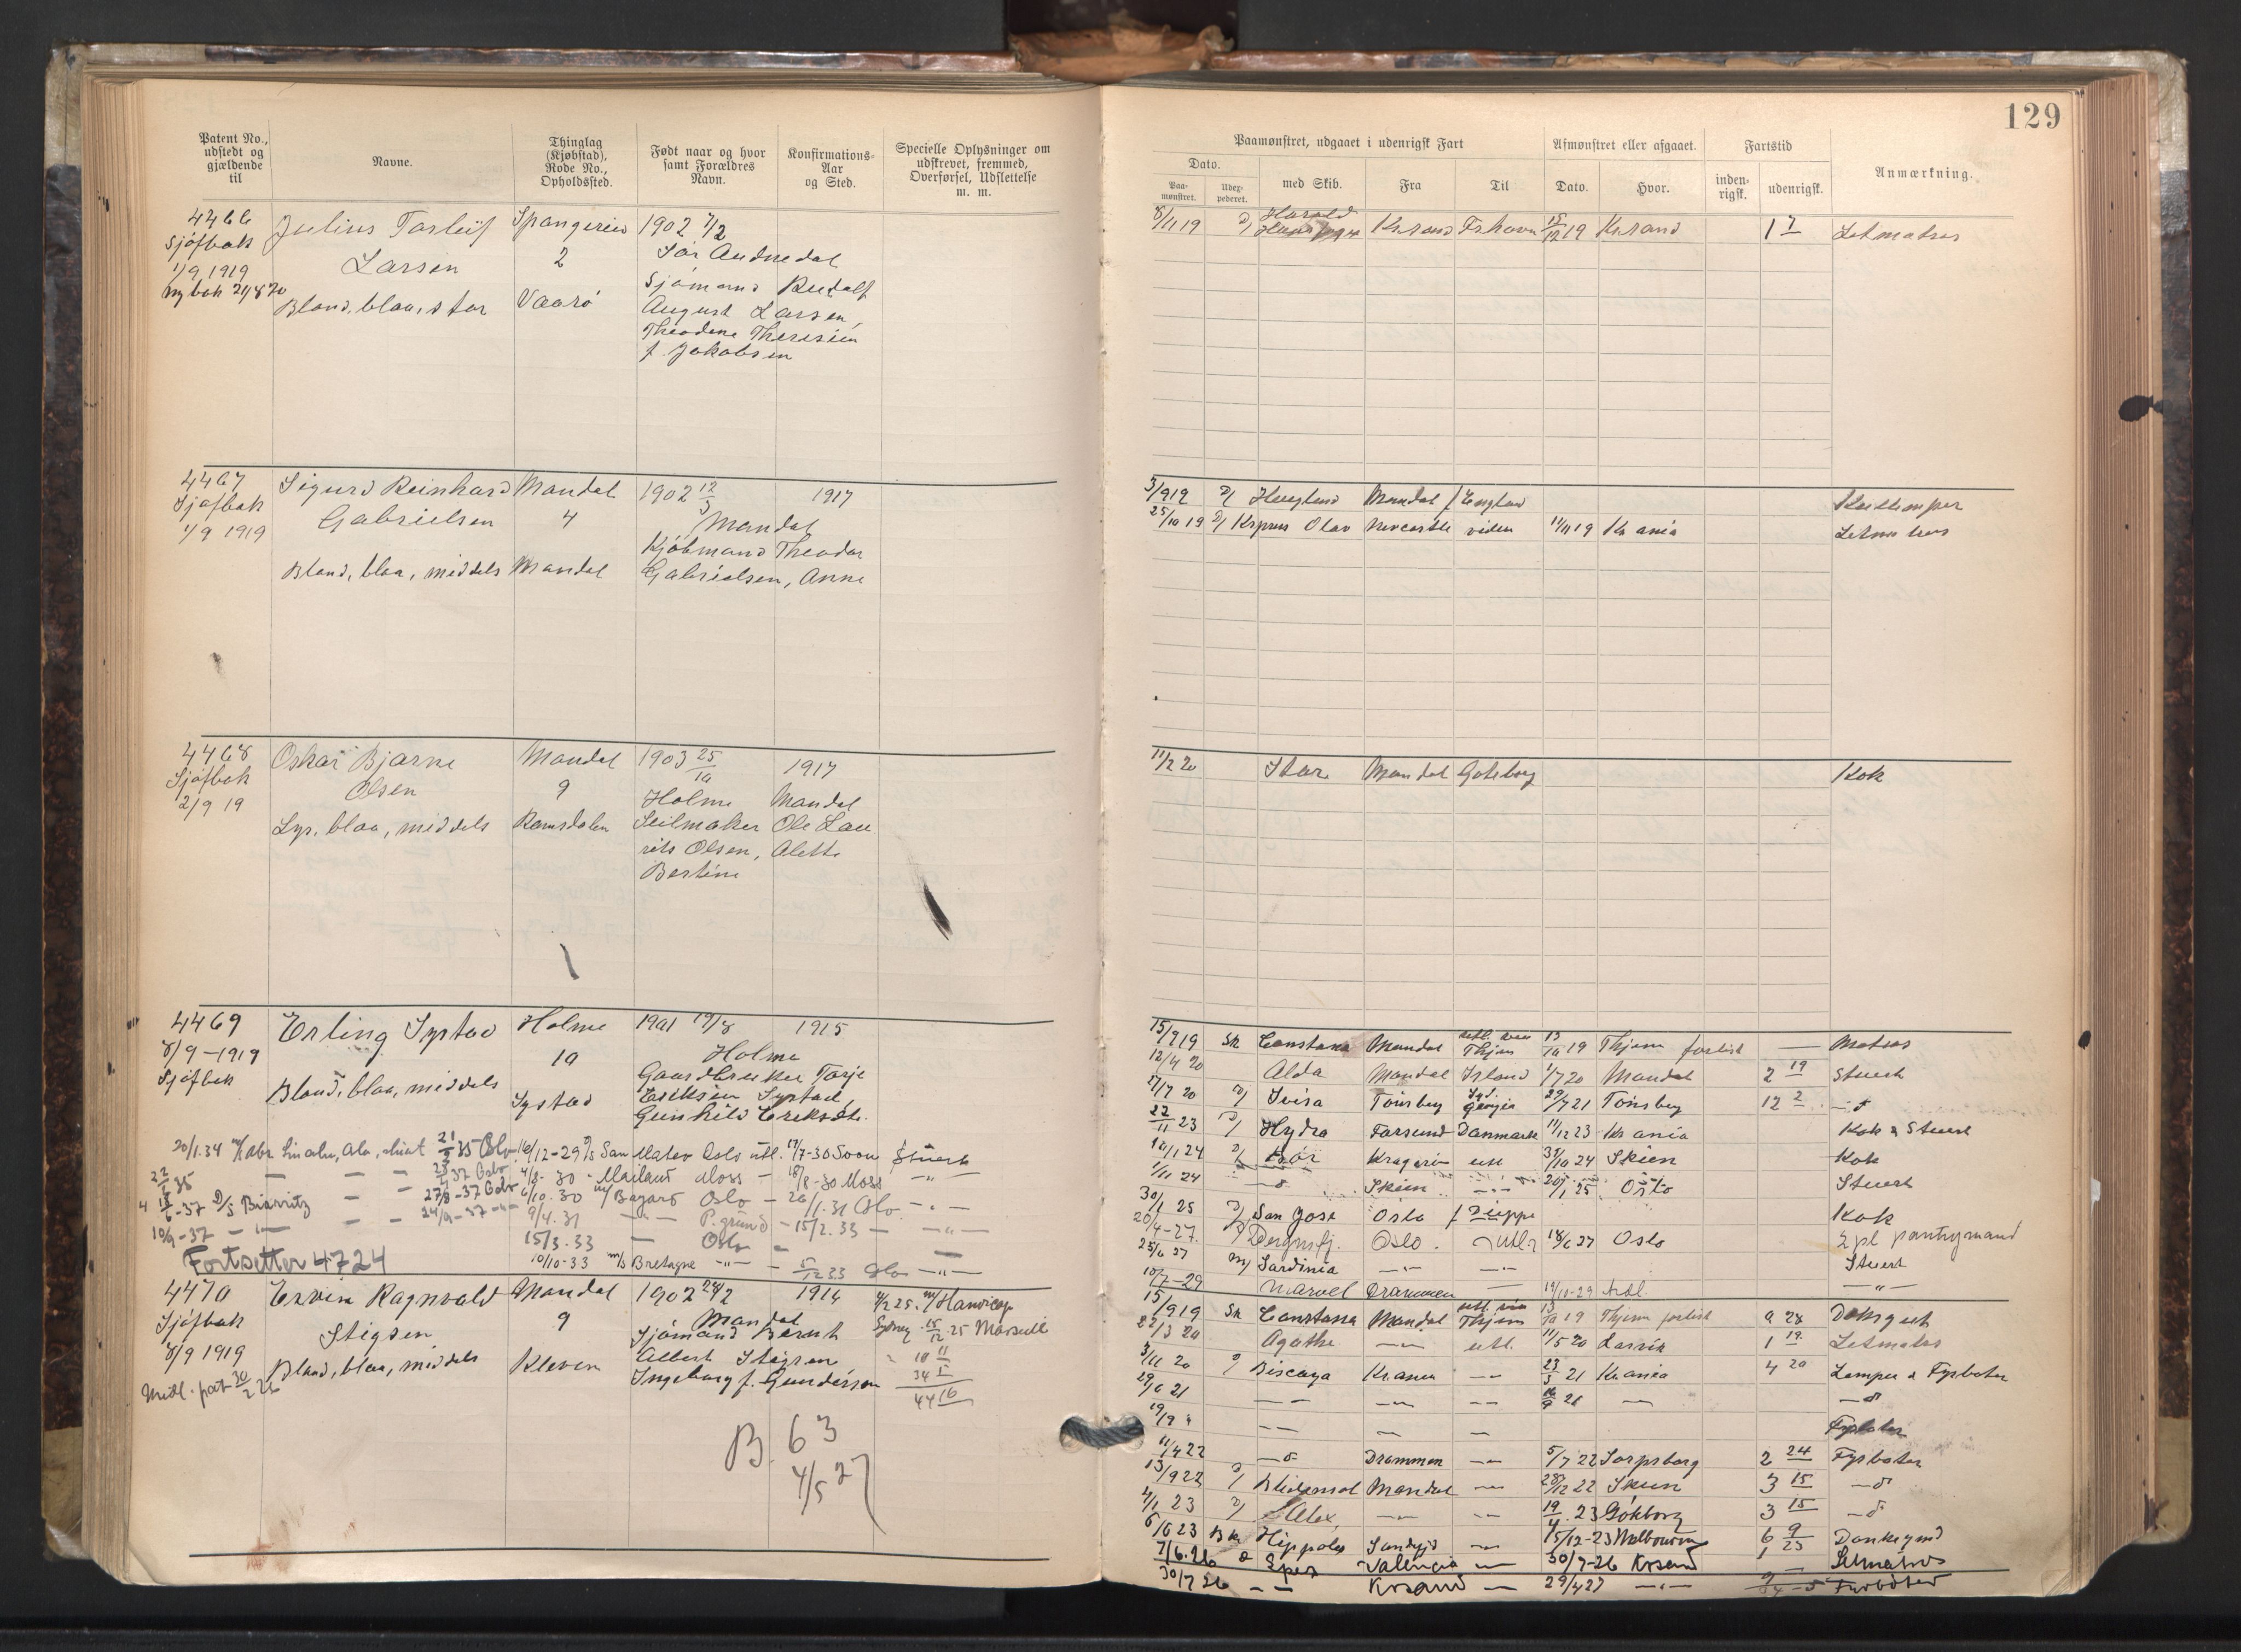 129
Patent No., udstedt og gjældende til
Navne.
Thinglag (Kjøbstad), Rode No., Opholdssted.
Født naar og hvor samt Forældres Navn.
Konfirmations-Aar og Sted.
Specielle Oplysninger om udskrevet, fremmed, Overførsel, Udslettelse m. m.
Paamønstret, udgaaet i udenrigsk Fart
Afmønstret eller afgaaet.
Fartstid
Anmærkning.
Dato.
Paa-mønstret.
Udex-pederet.
med Skib.
Fra
Til
Dato.
Hvor.
inden-rigsk.
udenrigsk.
4466 Julius Torleif Spangereid 1902 7/2
Sjøfbok Larsen 2 Sør Audnedal
1/9 1919 Sjømand Rudolf
Ny bok 21/8 20 Blond, blaa, stor Vaarø August Larsen,
Theodene Theresie
f. Jakobsen
8/11 19 D/ Harald Krsand Frhavn 15/12 19 Krsand 1 7 Letmatros
4467 Sigurd Reinhard Mandal 1902 12/3 1917
Sjøfbok Gabrielsen 4 Mandal
1/9 1919 Kjøbmand Theodor
Blond, blaa, middels Mandal Gabrielsen, Anne
3/9 19 D/ Mandal f England Kullemper
25/10 19 D/ Krprns Olav Newcastle viden 11/11 19 Kr ania Letmatros
4468 Oskar Bjarne Mandal 1903 25/10 1917
Sjøfbok Olsen 9 Holme Mandal
2/9 19 Lys, blaa, middels Ramsdalen Seilmaker Ole Lau
rits Olsen, Alette
Bertine
11/2 20 Stor Mandal Gøteborg Kok
4469 Erling Systad Holme 1901 19/8 1915
8/9-1919 10 Holme
Sjøfbok Gaardbruker Tarje
Blond, blaa, middels Systad Eriksen Systad,
Gunhild Eriksdt.
20/1.34 35 Oslo 16/12-29 D/s San Mateo Oslo utl. 17/7-30 Soon Stuert
35 - - - 37 Oslo 4/8-30 - Mailand Moss - 18/8-30 Moss -"-
-37 D/s Biarritz - - 27/8-37 Oslo 6/10.30 m/ Bayard Oslo - 26/1.31 Oslo - " -
10/9-37 - " - - - 24/9-37 -"- 9/4.31 - " - P.grund - 15/2.33 - - " -
15/3.33 - Oslo - -
Fortsetter 4724 10/10-33 m/s Bretagne -"- - 5/12 33 Oslo -"-
15/9 19 Sk Constanse Mandal utl. via Thjem 13/10 19 Thjem forlist — Matros
12/4 20 Alda Mandal Island 1/7 20 Mandal 2 19 Stuert
17/7 20 D/ Svisa Tønsberg Syd. Georgia 29/7 21 Tønsberg 12 2 - d
22/11 23 D/ Hydra Farsund Danmark 11/12 23 Kr ania Kok & Stuert
10/1 24 D/ Kragerø utl 31/10 24 Skien Kok
1/11 24 - d Skien -"- 20/1 25 Oslo Stuert
30/1 25 D/ San Jose Oslo f Dieppe Kok
20/4-27. D/ Bergnsfj. Oslo. Utl. 18/6 27 Oslo 2pl pantrymand
25/6 27 M/ Sardinia -"- -"- Stuert
10/7-29 Marvel Drammen — 19/11-29 Utl. -"-
4470 Ervin Ragnvald Mandal 1902 24/2 1916
Sjøfbok Stigsen 9 Mandal
8/9 1919 Sjømand Bernt
Blond, blaa, middels Kleven Albert Stigsen
Ingeborg f. Gundersen
Midl. pat 30/2 26
4/2 25. m/ Handicap
Sydney 15/12 25 Marseille
10 11
34 5
44 16
B. 63
4/5 27
15/9 19 Sk Constanse Mandal utl. via Thjem 13/10 19 Thjem forlist 0 28 Dæksgut
22/3 20 Agathe -"- utl. 11/5 20 Larvik 1 19 Letmatros
3/11 20 D/ Biscaya Krania -- 23/5 21 Krania 4 20 Lemper & Fyrbøter
29/6 21 - - - - - - 21 — - d
19/9 - - - - - Fyrbøter
11/4 22 - d Drammen -- 5/7 22 Sarpsborg 2 24 Fyrbøter
13/9 22 D/ Mandal -- 28/12 22 Skien 3 15 - d
4/1 23 D/ Alex -- -- 19/4.23 Gøtborg 3 15 - d
6/6 23 Bk Hippolos Sandefjd -- 15/12-23 Melbourne 6 9 Donkeymd
7/6.26 Spes Valencia — 30/7-26 Krsand 1 23 Letmatros
30/7 26 - - Krsand — 29/4 27 -"- Fyrbøter